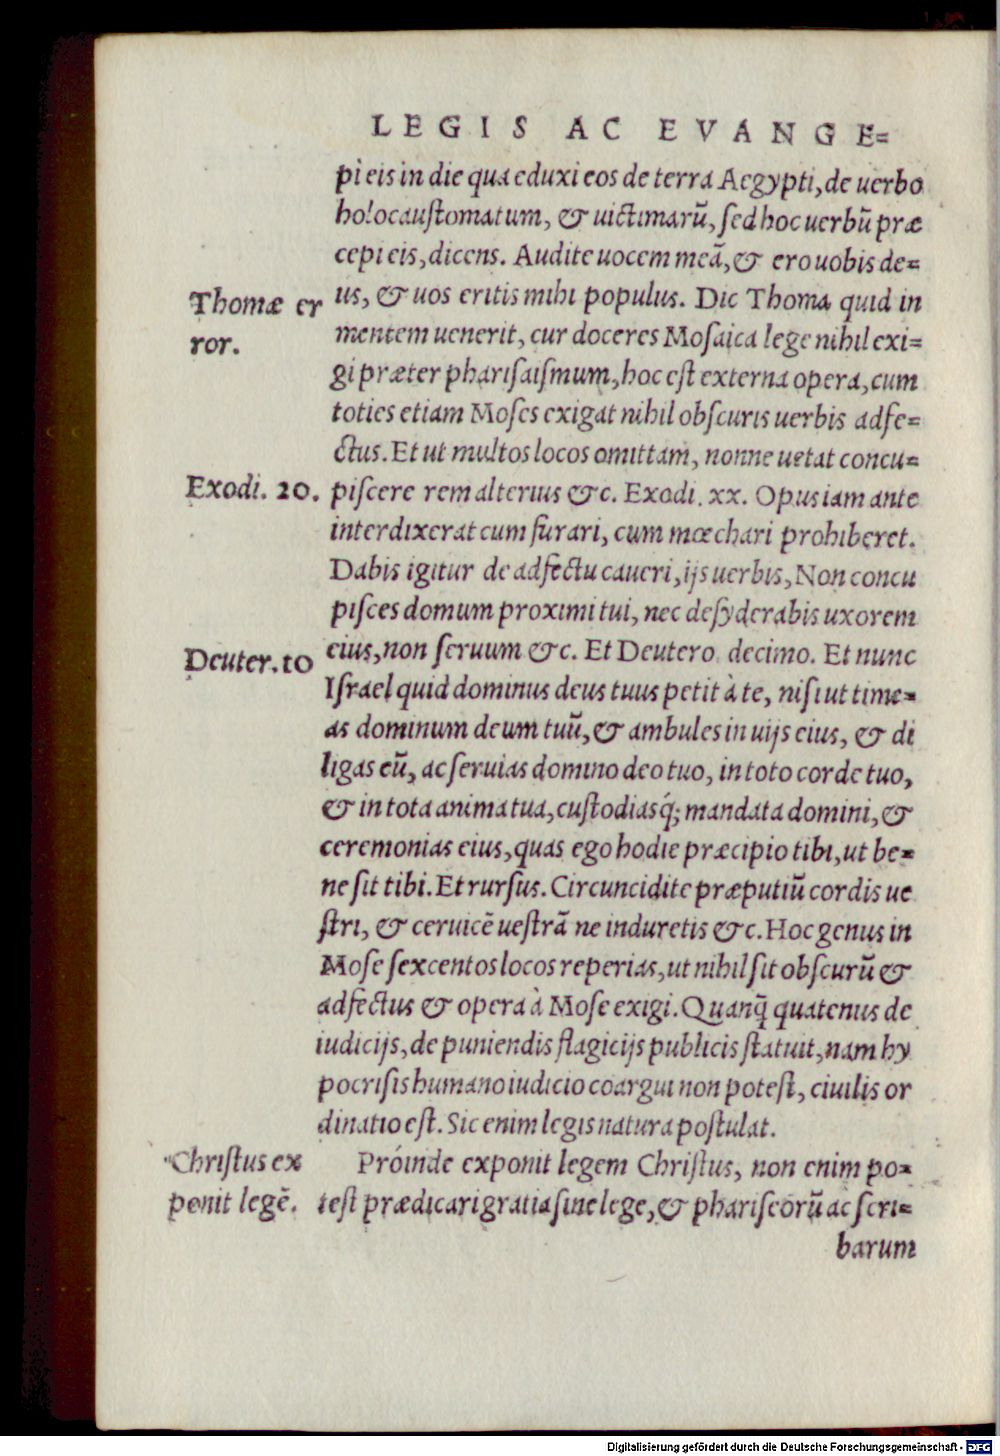 LEGIS AC EVANGE=
pi eis in die qua eduxi eos de terra Aegypti, de uerbo
holocaustomatum, & uictimarũ, sed hoc uerbũ præ
cepi eis, dicens. Audite uocem meã, & ero uobis de=
us, & uos eritis mihi populus. Dic Thoma quid in
Thomæ er
ror.
mentem uenerit, cur doceres Mosaica lege nihil exi=
gi præter pharisaismum, hoc est externa opera, cum
toties etiam Moses exigat nihil obscuris uerbis adfe=
ctus. Et ut multos locos omittam, nonne uetat concu=
Exodi. 20.
piscere rem alterius &c. Exodi. xx. Opus iam ante
interdixerat cum furari, cum mœchari prohiberet.
Dabis igitur de adfectu caueri, ijs uerbis, Non concu
pisces domum proximi tui, nec desyderabis uxorem
eius, non seruum &c. Et Deutero. decimo. Et nunc
Deuter. 10
Israel quid dominus deus tuus petit à te, nisi ut time=
as dominum deum tuũ, & ambules in uijs eius, & di
ligas eũ, ac seruias domino deo tuo, in toto corde tuo,
& in tota anima tua, custodiasq́; mandata domini, &
ceremonias eius, quas ego hodie præcipio tibi, ut be=
ne sit tibi. Et rursus. Circuncidite præputiũ cordis ue
stri, & ceruicẽ uestrã ne induretis &c. Hoc genus in
Mose sexcentos locos reperias, ut nihil sit obscurũ &
adfectus & opera à Mose exigi. Quanq̃ quatenus de
iudicijs, de puniendis flagicijs publicis statuit, nam hy
pocrisis humano iudicio coargui non potest, ciuilis or
dinatio est. Sic enim legis natura postulat.
Christus ex
ponit legẽ.
Próinde exponit legem Christus, non enim po=
test prædicari gratia sine lege, & phariseorũ ac scri=
barum
Digitalisierung gefördert durch die Deutsche Forschungsgemeinschaft - DFG